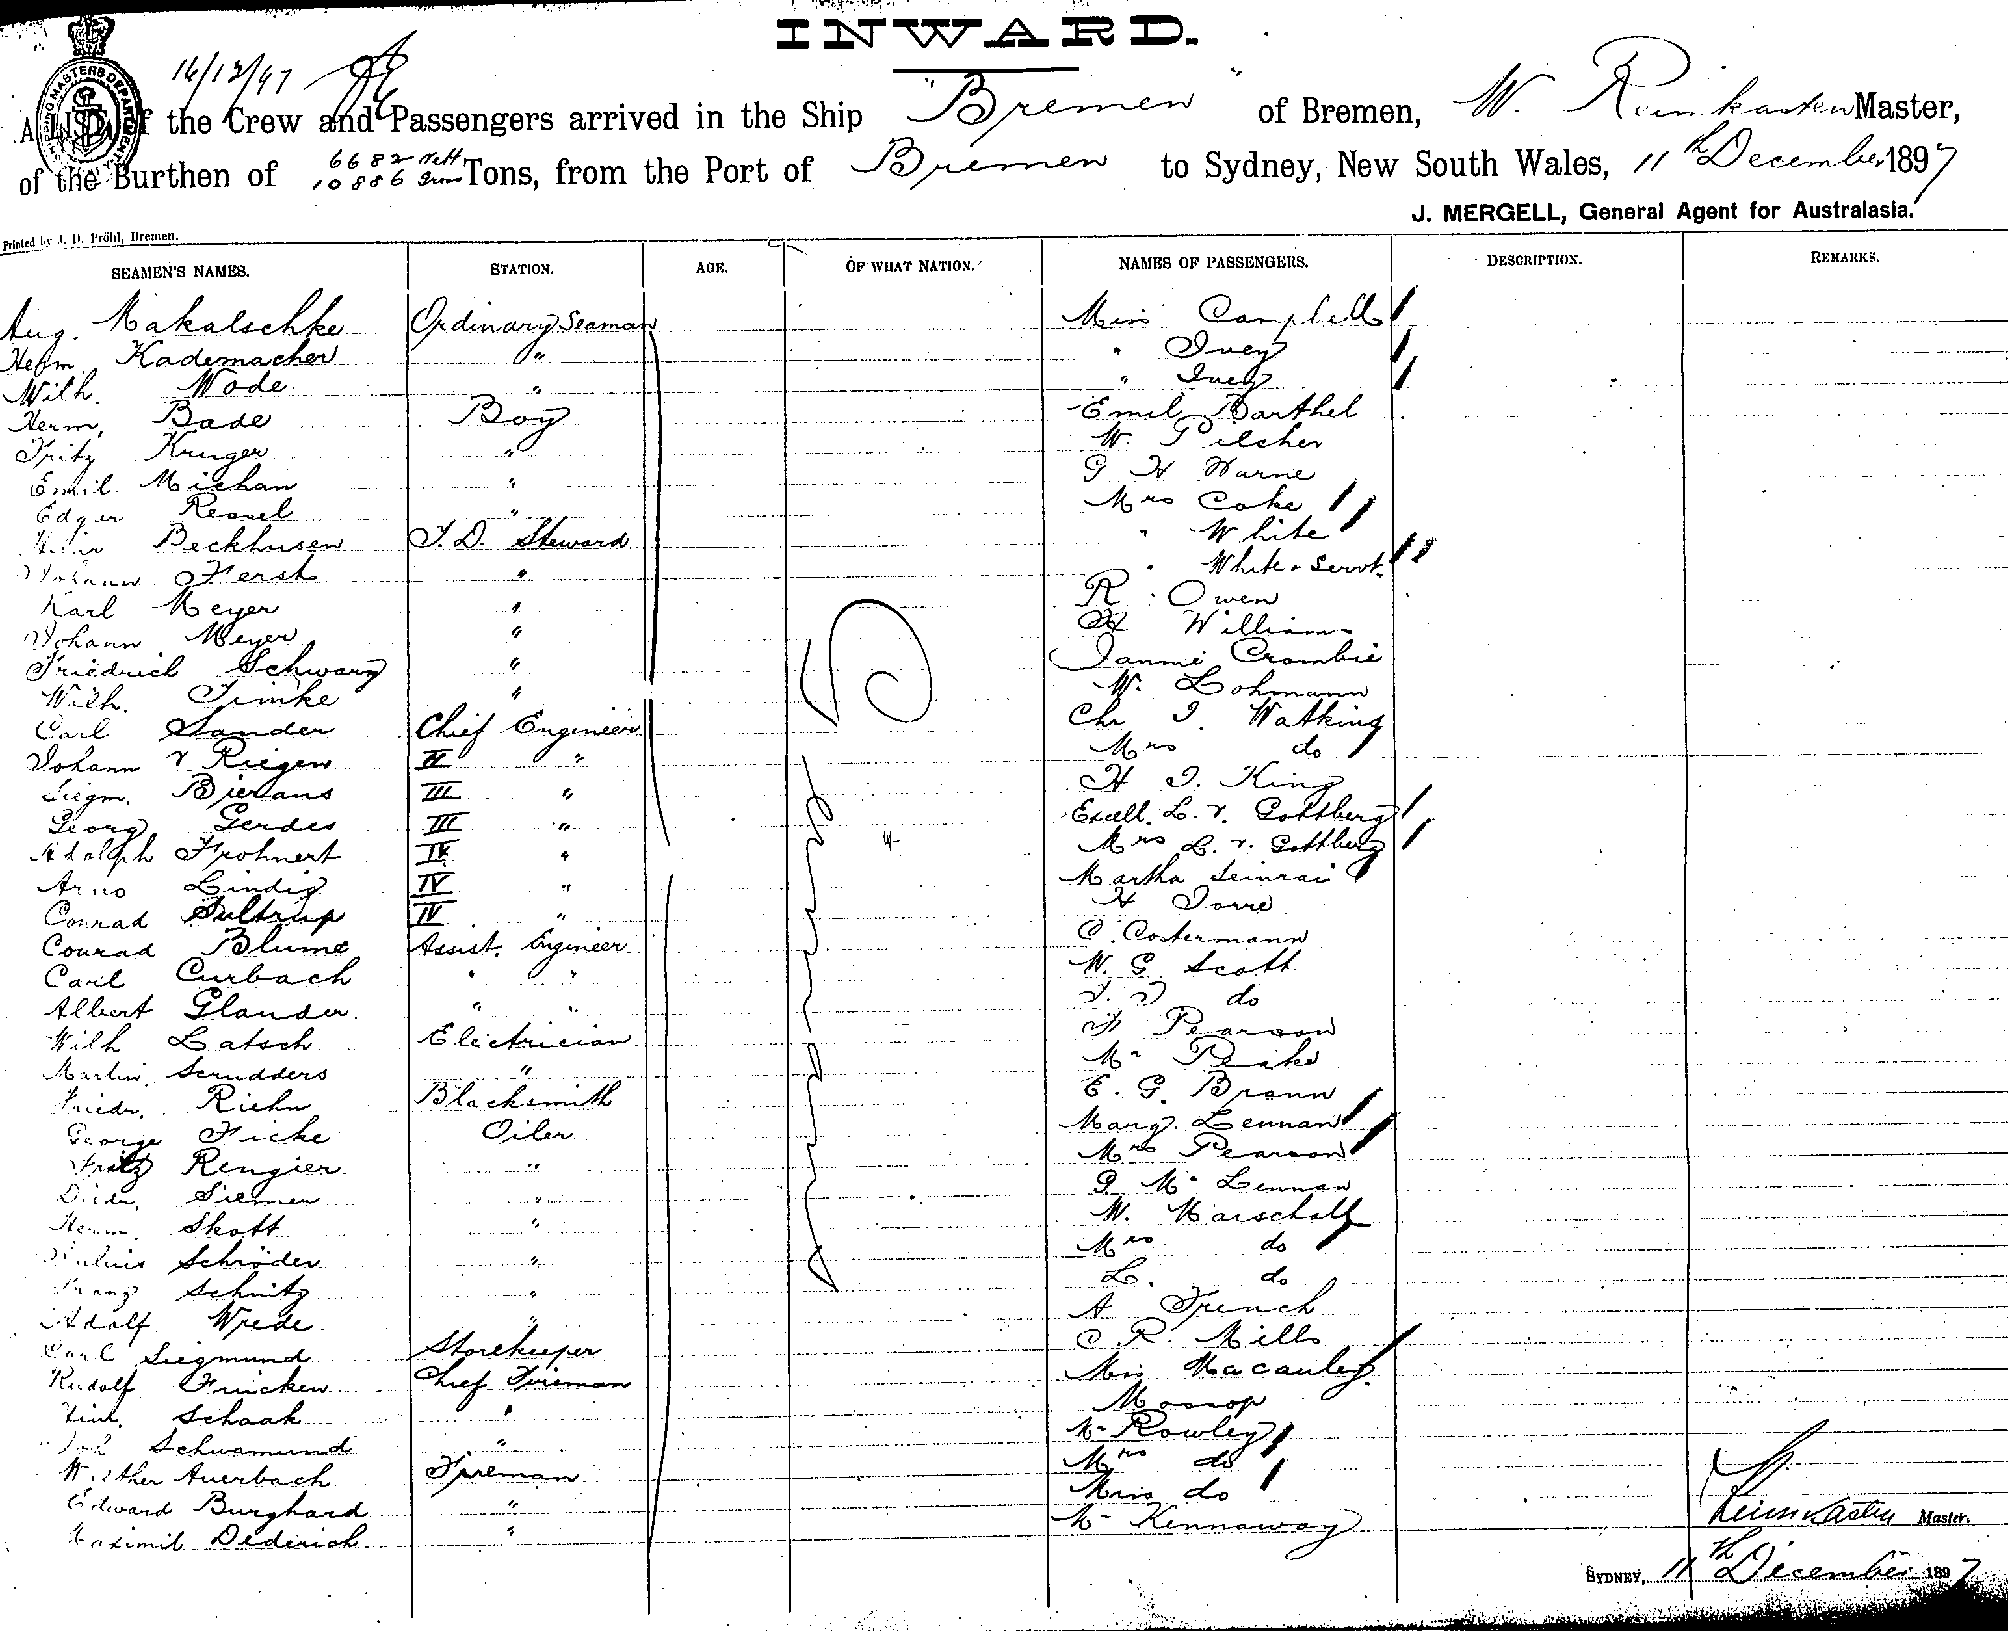 INWARD.
16/12/97
A LIST of the Crew and Passengers arrived in the Ship "Bremen" of Bremen, W. Reimkasten Master,
of the Burthen of 6682 Nett 10886 Gross Tons, from the Port of Bremen to Sydney, New South Wales, 11th December 1897
J. MERGELL, General Agent for Australasia.
Printed by J. D. Pröhl, Bremen.
SEAMEN'S NAMES. STATION. AGE. OF WHAT NATION. NAMES OF PASSENGERS. DESCRIPTION. REMARKS.
Aug. Makalschke Ordinary Seaman Miss Campbell
Herm Kademacher " " Ivey
Wilh. Wode " " Ivey
Herm. Bade Boy Emil Barthel
Fritz Kruger " W. Pilcher
Emil Michan " G H Warne
Edgar Ressel " Mrs Cake
Beckhusen I.D. Steward " White
Johann Ferst " " White's Servt.
Karl Meyer " R. Owen
Johann Meyer " H Williams
Friedrich Schwarz " Fannie Crombie
Wilh. Timke " W. Lohmann
Carl Sander Chief Engineer Chr I. Watkins
Johann v Riegen II " Mrs do
Siegm. Bierans III " H I. King
Georg Gerdes III " Excell. L. v. Gottberg
Adolph Frohnert IV " Mrs L. v. Gottberg
Arno Lindig IV " Martha
Conrad Sultrup IV " H Torre
Conrad Blume Assist. Engineer C. Costermann
Carl Curbach " " W. G. Scott
Albert Glander " " do
Wilh Latsch Electrician Pearson
Martin Scrudders " Mr
Friedr. Riehn Blacksmith E. G. Brann
George Ficke Oiler Marg. Lennan
Fritz Rengier " Mrs Pearson
Diedr. Siemen " G. Mc Lennan
Herm. Skott " W. Marschall
Julius Schröder " Mrs do
Franz Schmitz " L. do
Adolf Wrede " A French
Carl Siegmund Storekeeper C. R. Mills
Rudolf Frücken Chief Fireman Miss Macauley
Schaak " Mossop
Joh Schwamund " Mr Rowley
Walther Auerbach Fireman Mrs do
Edward Burghard " Miss do
Maximil Dederich " Mr Kennaway
Germany
Reimkasten Master.
SYDNEY, 11th December 1897